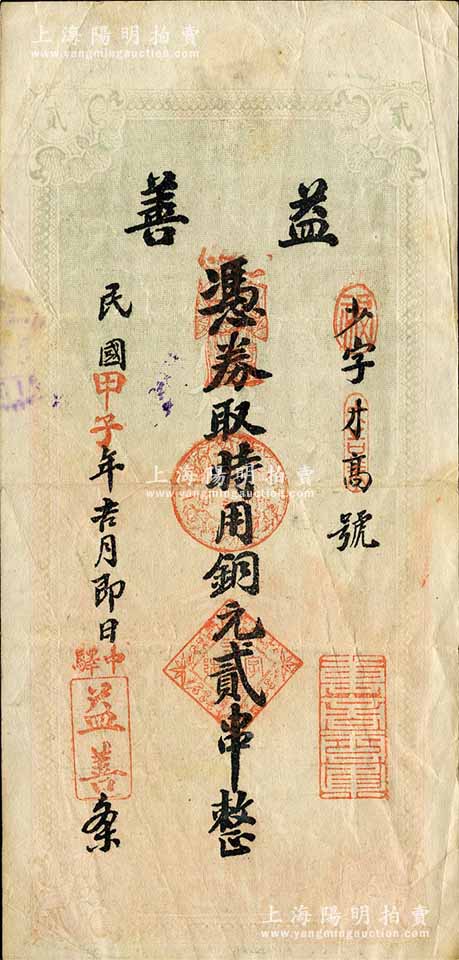 上海陽明拍賣
www.yangmingauction.com
貳
貳
益善
少字才高號
憑券取時用銅元貳串整
民國甲子年吉月即日
中驛
益善
条
上海陽明拍賣
www.yangmingauction.com
上海陽明拍賣
www.yangmingauction.com